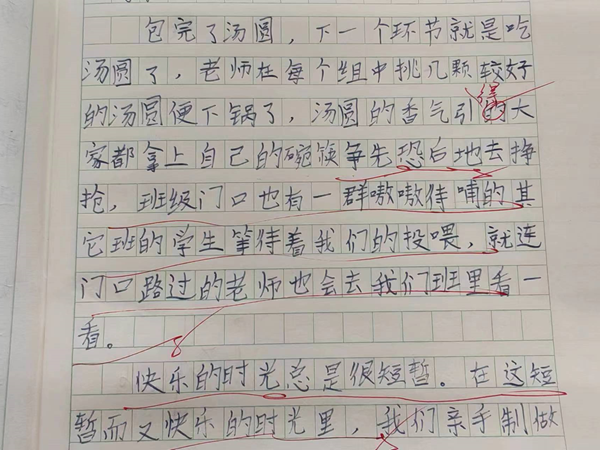 包完了汤圆，下一个环节就是吃
汤圆了，老师在每个组中挑几颗较好
得
的汤圆便下锅了，汤圆的香气引的大
家都拿上自己的碗筷争先恐后地去挣
抢，班级门口也有一群嗷嗷待哺的其
它班的学生等待着我们的投喂，就连
门口路过的老师也会去我们班里看一
看。
快乐的时光总是很短暂。在这短
暂而又快乐的时光里，我们亲手制做